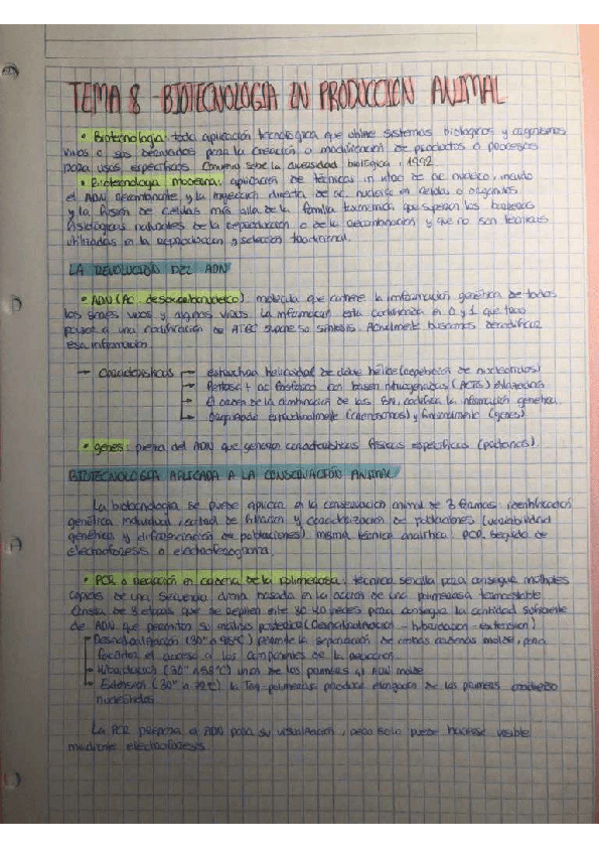 TEMA 8 - BIOTECNOLOGIA EN PRODUCCION ANIMAL
• Biotecnologia: toda aplicación tecnológica que utilice sistemas biologicos y organismos
vivos o sus derivados para la creación o modificación de productos o procesos
para usos especificos. Convenio sobre la diversidad biologica, 1992
• Biotecnologia moderna: aplicación de técnicas in vitro de ac nucleico, incluido
el ADN recombinante y la inyección directa de ac. nucleico en celulas u organulos
y la fusión de celulas más alla de la familia taxonomica que superan las barreras
fisiologicas naturales de la reproduccion o de la recombinacion y que no son tecnicas
utilizadas en la reproduccion y selección tradicional.
LA REVOLUCIÓN DEL ADN
• ADN (Ac. desoxirribonucleico): molecula que contiene la información genética de todos
los seres vivos y algunos virus. La informacion esta en 0 y 1 que tras
a una de ATGC supone su sintesis. Actualmente buscamos
esa informacion.
→ Caracteristicas
estructura helicoidal de doble hélice (repeticion de nucleotidos)
Pentosa + ac fosforico con bases nitrogenadas (ACTG)
El orden de la combinación de las BN, codifica la informacion genetica.
Organizado estructuralmente (cromosomas) y funcionalmente (genes)
• genes: pieza del ADN que generan caracteristicas fisicas especificas (proteinas).
BIOTECNOLOGIA APLICADA A LA CONSERVACIÓN ANIMAL
La biotecnologia se puede aplicar en la conservación animal de 3 formas: identificación
genética individual, control de filiacion y caracterización de poblaciones (variabilidad
genética y diferenciacion de poblaciones). misma técnica analitica: PCR, seguido de
electroforesis o electroferograma.
• PCR o reacción en cadena de la polimerasa: técnica sencilla para conseguir múltiples
copias de una secuencia diana basada en la acción de una polimerasa termoestable.
Consta de 3 etapas que se repiten entre 30-40 veces para conseguir la cantidad suficiente
de ADN que permitan su análisis posterior (Desnaturalización - hibridacion - extension)
Desnaturalización (30" a 95ºC) permite la separación de ambas cadenas molde, para
facilitar el acceso a los componentes de la reaccion.
Hibridacion (30" a 58ºC) unión de los primers al ADN molde
Extensión (30" a 72ºC) la Taq polimerasa produce elongación de los primers
nucleotidos.
La PCR prepara el ADN para su visualización, pero solo puede hacerse visible
mediante electroforesis.